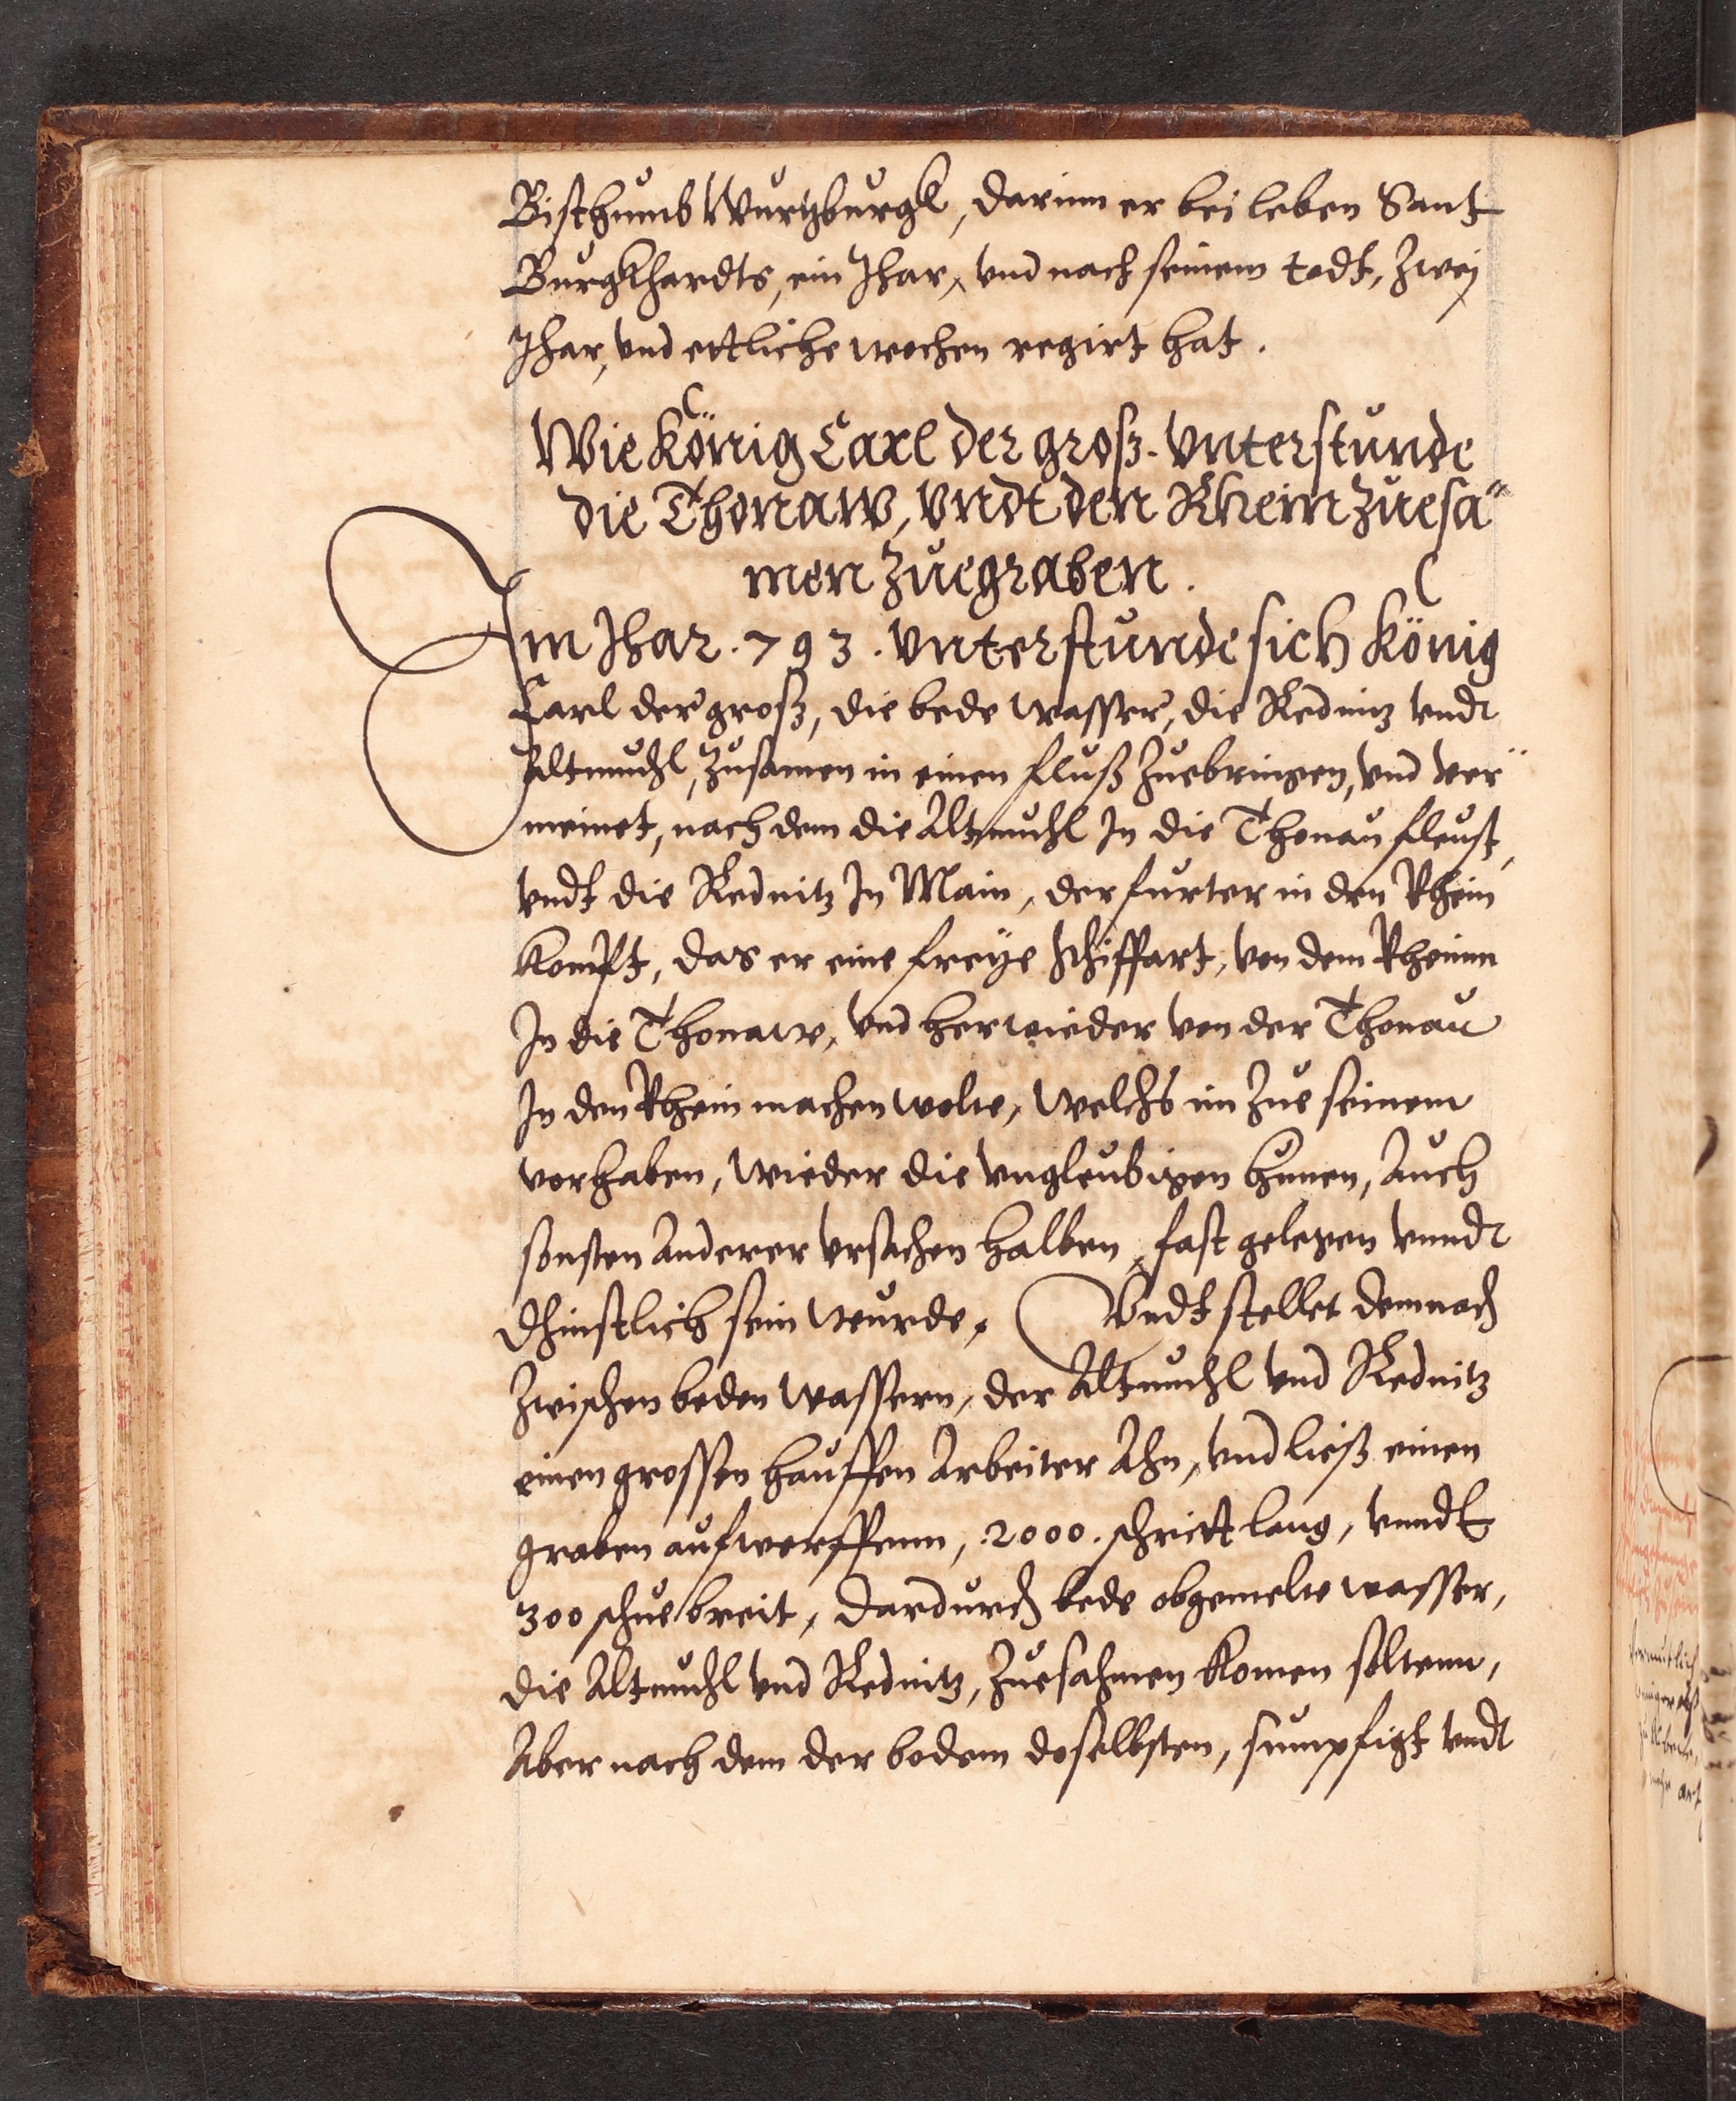 Bisthumb Wurtzburgk, darinn er bei leben Sant
Burgkhardts, ein Jhar, vnd nach seinem todt, zwej
Jhar, vnd ettliche wochen regirt hat.
Wie König Carl der groß. vnterstunde
die Thonaw, vndt den Rhein zuesa¨
men zuegraben.
Im Jhar. 793. vnterstunde sich König
Carl der groß, die bede wasser, die Rednitz vndt
Altmuhl, zusamen in einen fluß zuebringen, vnd ver¨
meinet, nach dem die Altmuhl In die Thonau fleust,
vndt die Rednitz In Main, der furter in den Rhein
kompt, das er eine freÿe schiffart, von dem Rheinn
In die Thonaw, vnd herwieder von der Thonau
In den Rhein machen wolte, welchs im zue seinem
vorhaben, wieder die vngleubigen hunen, Auch
sonsten Anderer vrsachen halben, fast gelegen vnndt
dhinstlich sein wurde, Vndt stellet demnach
zwischen beden wassern, der Altmuhl vnd Rednitz
einen grossen hauffen Arbeiter Ahn, vnd ließ einen
graben aufwerffenn, .2000. schritt lang, vnndt
300 schue breit, dardurch bede obgemelte wasser,
die Altmuhl vnd Rednitz, zuesahmen komen soltenn,
Aber nach dem der bodem doselbsten, sumpfigt vndt